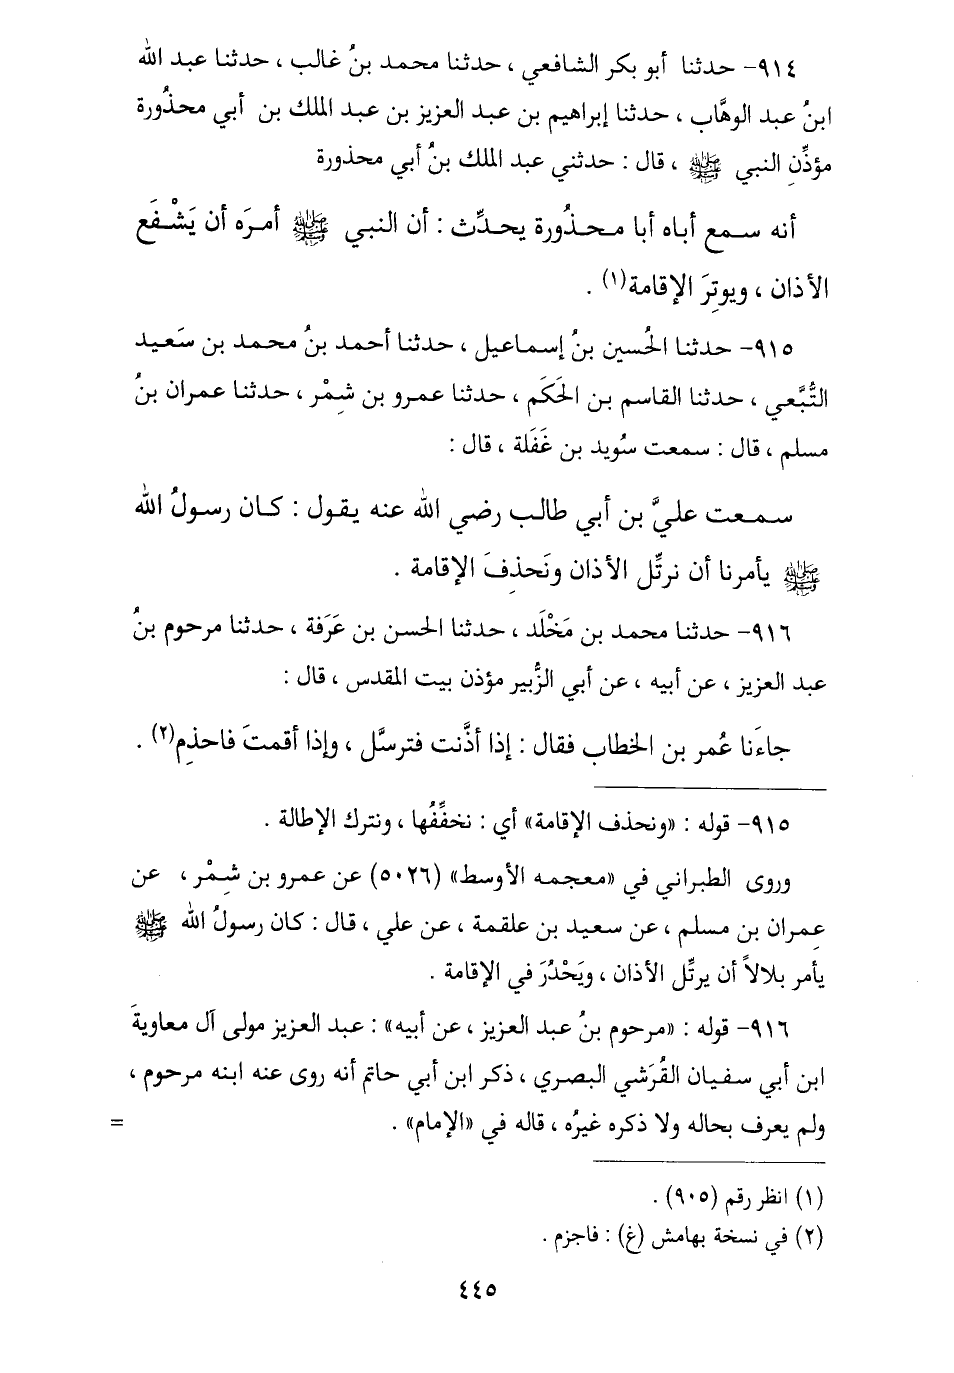 ٩١٤- حدثنا أبو بكر الشافعي ، حدثنا محمد بنُ غالب ، حدثنا عبد الله
ابنُ عبد الوهَّاب ، حدثنا إبراهيم بن عبد العزيز بن عبد الملك بن أبي محذُورة
مؤذِّنِ النبي ﷺ ، قال : حدثني عبد الملك بنُ أبي محذورة
أنه سمع أباه أبا محذُورة يحدِّث : أن النبي ﷺ أمرَه أن يَشْفَع
الأذان ، ويوتِرَ الإقامة(١) .
٩١٥- حدثنا الحُسين بنُ إسماعيل ، حدثنا أحمد بنُ محمد بن سَعيد
التُّبَّعي ، حدثنا القاسم بن الحَكَم ، حدثنا عمرو بن شِمْر ، حدثنا عمران بنُ
مسلم ، قال : سمعت سُويد بن غَفَلة ، قال :
سمعت عليَّ بن أبي طالب رضي الله عنه يقول : كان رسولُ الله
ﷺ يأمرنا أن نرتِّل الأذان ونَحذِفَ الإقامة .
٩١٦- حدثنا محمد بن مَخْلَد ، حدثنا الحسن بن عَرَفة ، حدثنا مرحوم بنُ
عبد العزيز ، عن أبيه ، عن أبي الزُّبير مؤذن بيت المقدس ، قال :
جاءَنا عُمر بن الخطاب فقال : إذا أذَّنت فترسَّل ، وإذا أقمتَ فاحذِم(٢) .
٩١٥- قوله : «ونحذف الإقامة» أي : نخفِّفُها ، ونترك الإطالة .
وروى الطبراني في «معجمه الأوسط» (٥٠٢٦) عن عمرو بن شِمْر ، عن
عِمران بن مسلم ، عن سعيد بن علقمة ، عن علي ، قال : كان رسولُ الله ﷺ
يأمر بلالاً أن يرتِّل الأذان ، ويَحْدُرَ في الإقامة .
٩١٦- قوله : «مرحوم بنُ عبد العزيز ، عن أبيه» : عبد العزيز مولى آل معاويةَ
ابن أبي سفيان القُرَشي البصري ، ذكر ابن أبي حاتم أنه روى عنه ابنه مرحوم ،
ولم يعرف بحاله ولا ذكره غيرُه ، قاله في «الإمام» . =
(١) انظر رقم (٩٠٥) .
(٢) في نسخة بهامش (غ) : فاجزم .
٤٤٥